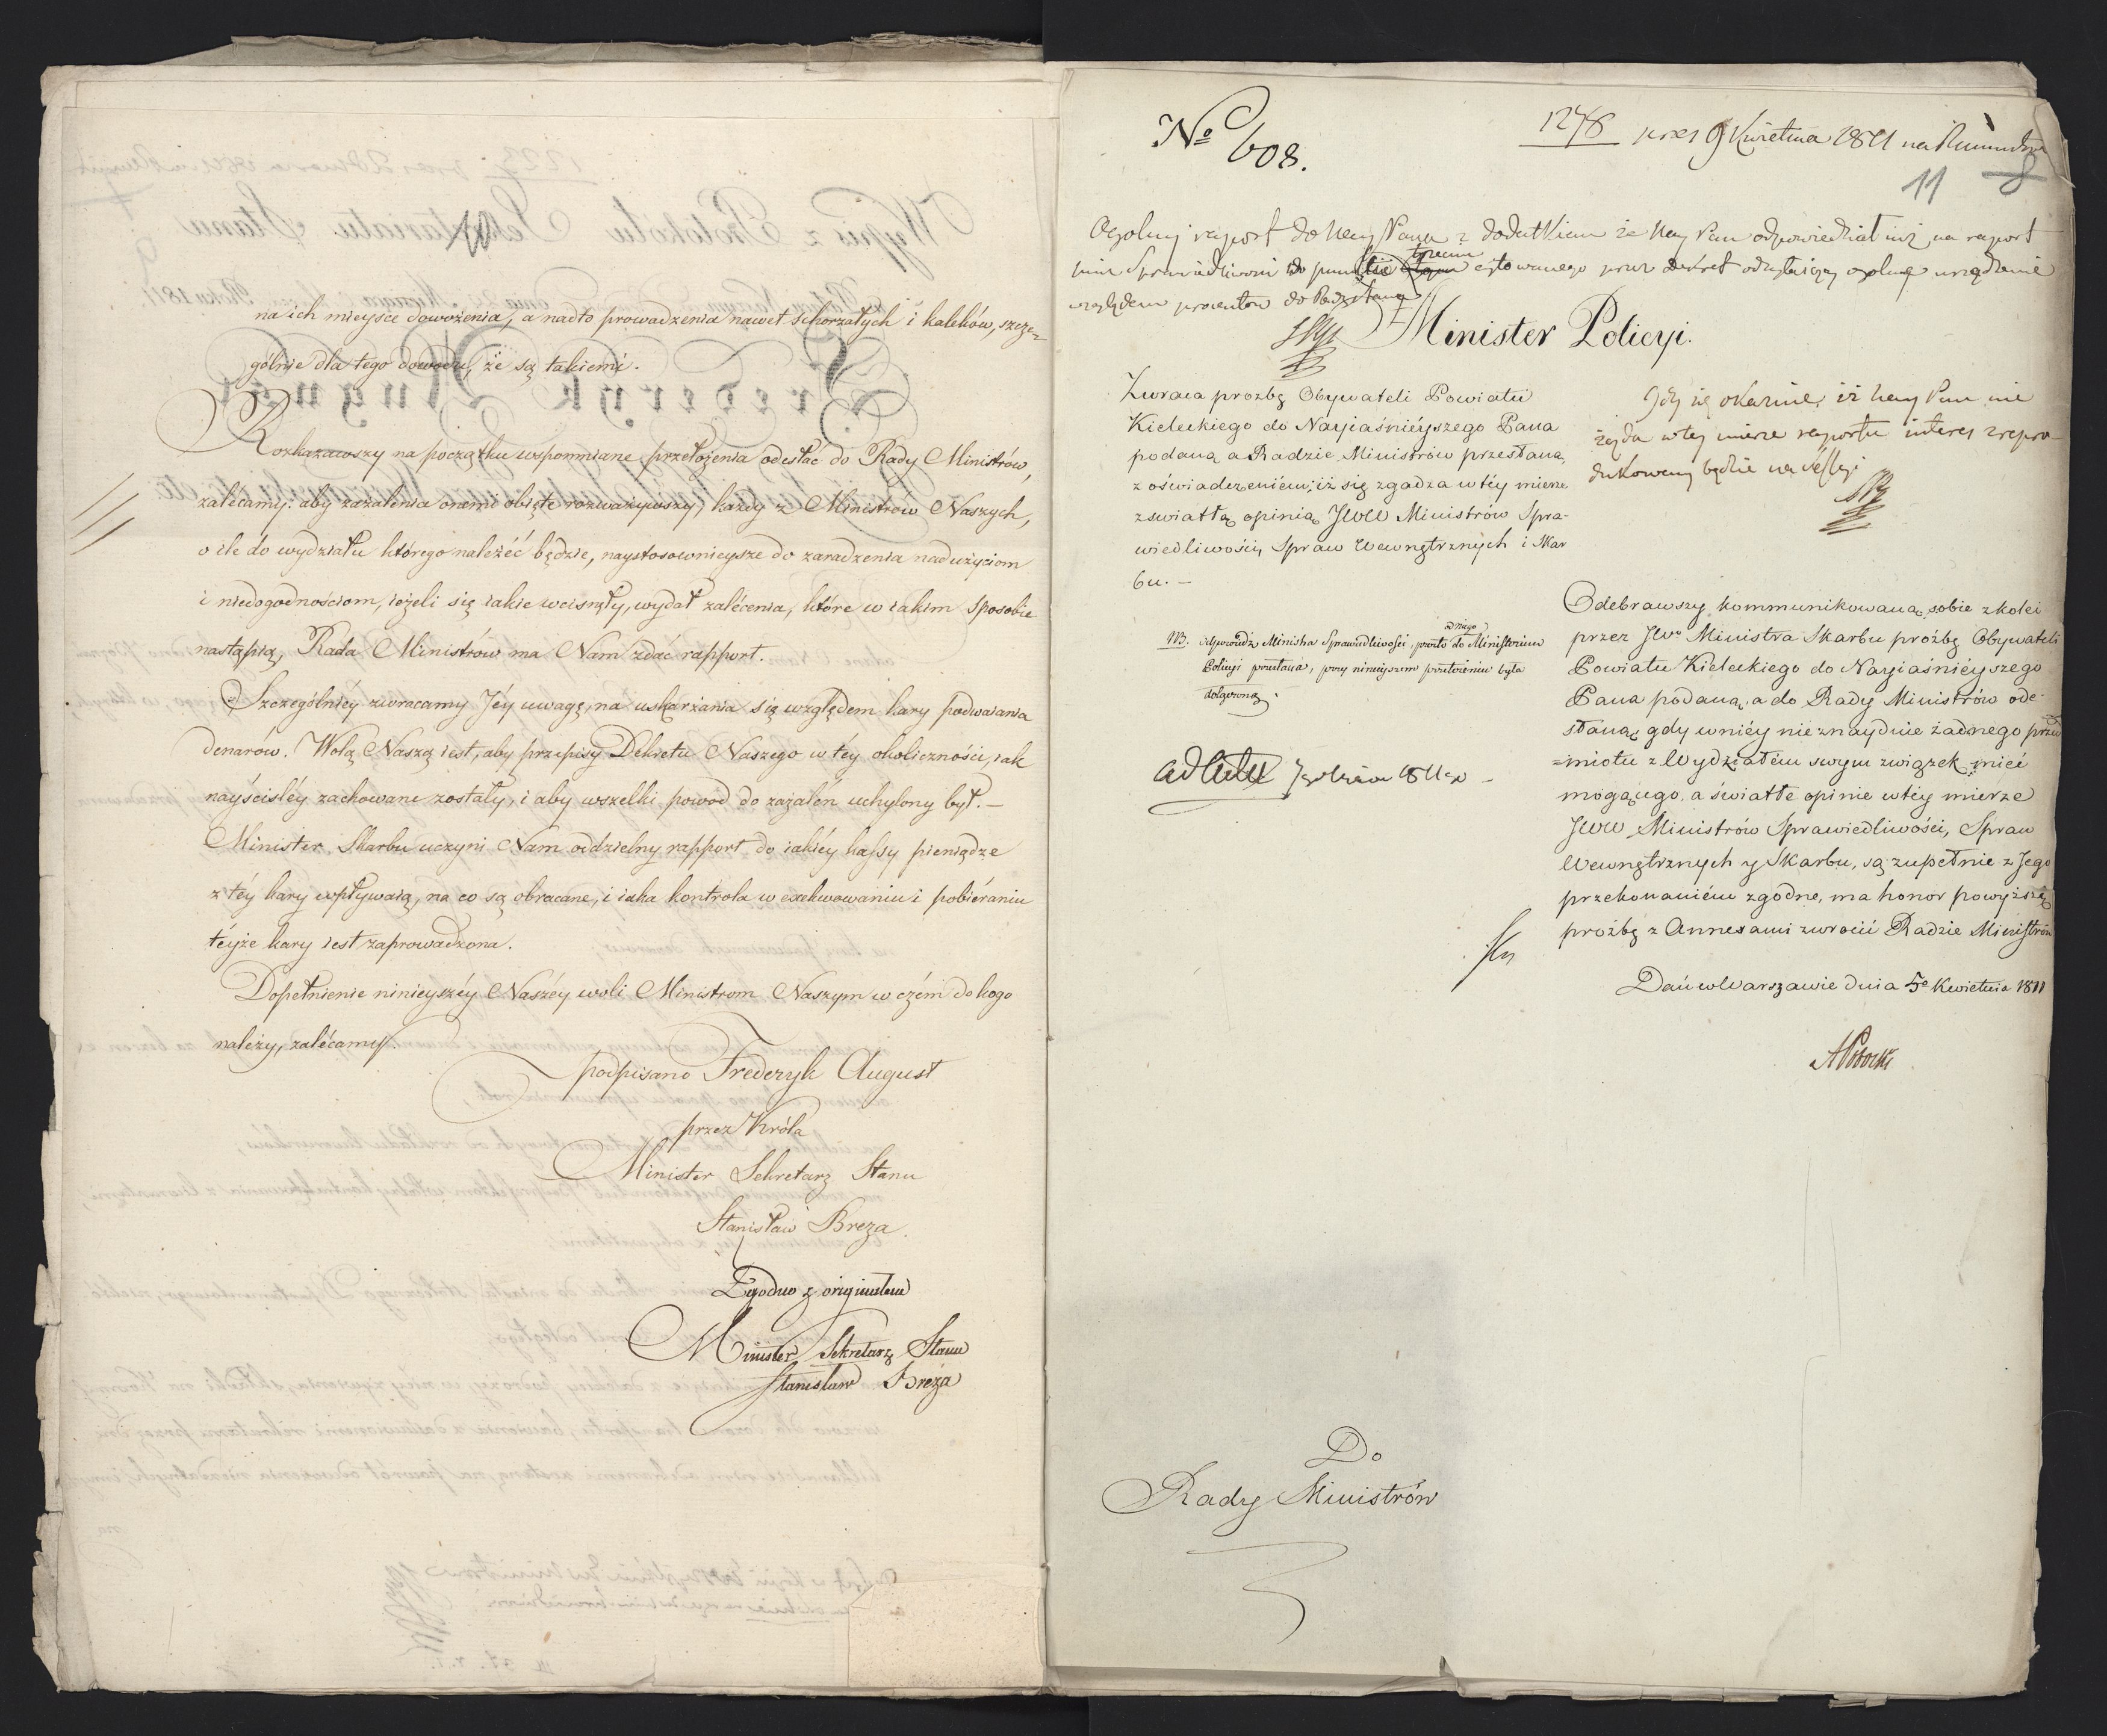 na ich mieysce dowożenia, a nadto prowadzenia nawet schorzałych i kaleków, szcze-
gólnie dla tego dowodu, że są takiemi.
Rozkazawszy na początku wspomniane przełożenia odesłać do Rady Ministrów,
zalécamy: aby zażalenia oremi obięte rozważywszy, każdy z Ministrów Naszych,
o ile do wydziału którego należéć będzie, naystosownieysze do zaradzenia nadużyciom
i niedogodnościom, ieżeli się iakie wcisnęły, wydał zalécenia, które w iakim sposobie
nastąpią, Rada Ministrów ma Nam zdać rapport.
Szczególniéy zwracamy Jéy uwagę, na uskarżania się względem kary podwaiania
denarów. Wolą Naszą iest, aby przepisy Dekretu Naszego w téy okoliczności, iak
nayściśléy zachowane zostały, i aby wszelki powód do zażaleń uchylony był. —
Minister Skarbu uczyni Nam oddzielny rapport do iakiéy kassy pieniądze
z téy kary wpływaią, na co są obracane, i iaka kontrola w exekwowaniu i pobiéraniu
téyże kary iest zaprowadzona.
Dopełnienie ninieyszéy Naszéy woli Ministrom Naszym w czém do kogo
należy, zalécamy.
podpisano Frederyk August
przez Króla
Minister Sekretarz Stanu
Stanisław Breza.
Zgodno z originałem
Minister Sekretarz Stanu
Stanisław Breza
No 608.
1278 pres 9 Kwietnia 1811 na
11 8
Ogolny raport do Nay Pana z dodatkiem że Nay Pan odpowiedział już na raport
Min Sprawiedliwości do punktu trzecim cytowanego przez dekret odsyłaiący ogolne urządzenie
względem procentów do Rady Stanu
Minister Policyi.
Zwraca prozbę Obywateli Powiatu
Kieleckiego do Nayiaśniéyszego Pana
podaną a Radzie Ministrów przesłaną,
z oświadczeniem, iż się zgadza w téy mierze
z światłą opinią JWW Ministrów Spra-
wiedliwości, Spraw Wewnętrznych i Skar
bu. —
Gdy się okaznie, iż Nay Pan nie
żąda w tey mierze raportu interes zrepro-
dukowany będzie na Sessyi
NB. odpowiedz Ministra Sprawiedliwości, prosto od niego do Ministerium
Policyi przesłana, przy ninieyszem przełożeniu była
dołączoną.
ad acta 1811
Odebrawszy kommunikowaną sobie z kolei
przez JWo Ministra Skarbu proźbę Obywateli
Powiatu Kieleckiego do Nayiaśniéyszego
Pana podaną, a do Rady Ministrów ode-
słaną, gdy w niéy nie znayduie żadnego przed
=miotu z Wydziałem swym związek mieć
mogącego, a światłe opinie w téy mierze
JWW Ministrów Sprawiedliwości, Spraw
Wewnętrznych y Skarbu, są zupełnie z Jego
przekonaniem zgodne, ma honor powyższą
proźbę z Annexami zwrócić Radzie Ministrów
Dań w Warszawie dnia 5o Kwietnia 1811
APotocki
Do
Rady Ministrów